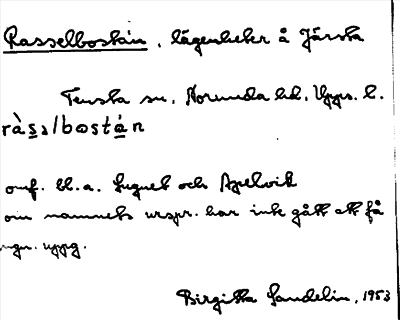 Rasselbostán, lägenheter å Järsta
Tensta sn, Norunda hd, Upps. l.
ràsəlbostán
ouf. bl.a. och
om namnets urspr. har inte gått att få
ngn. uppg.
Birgitta Sandelin, 1953